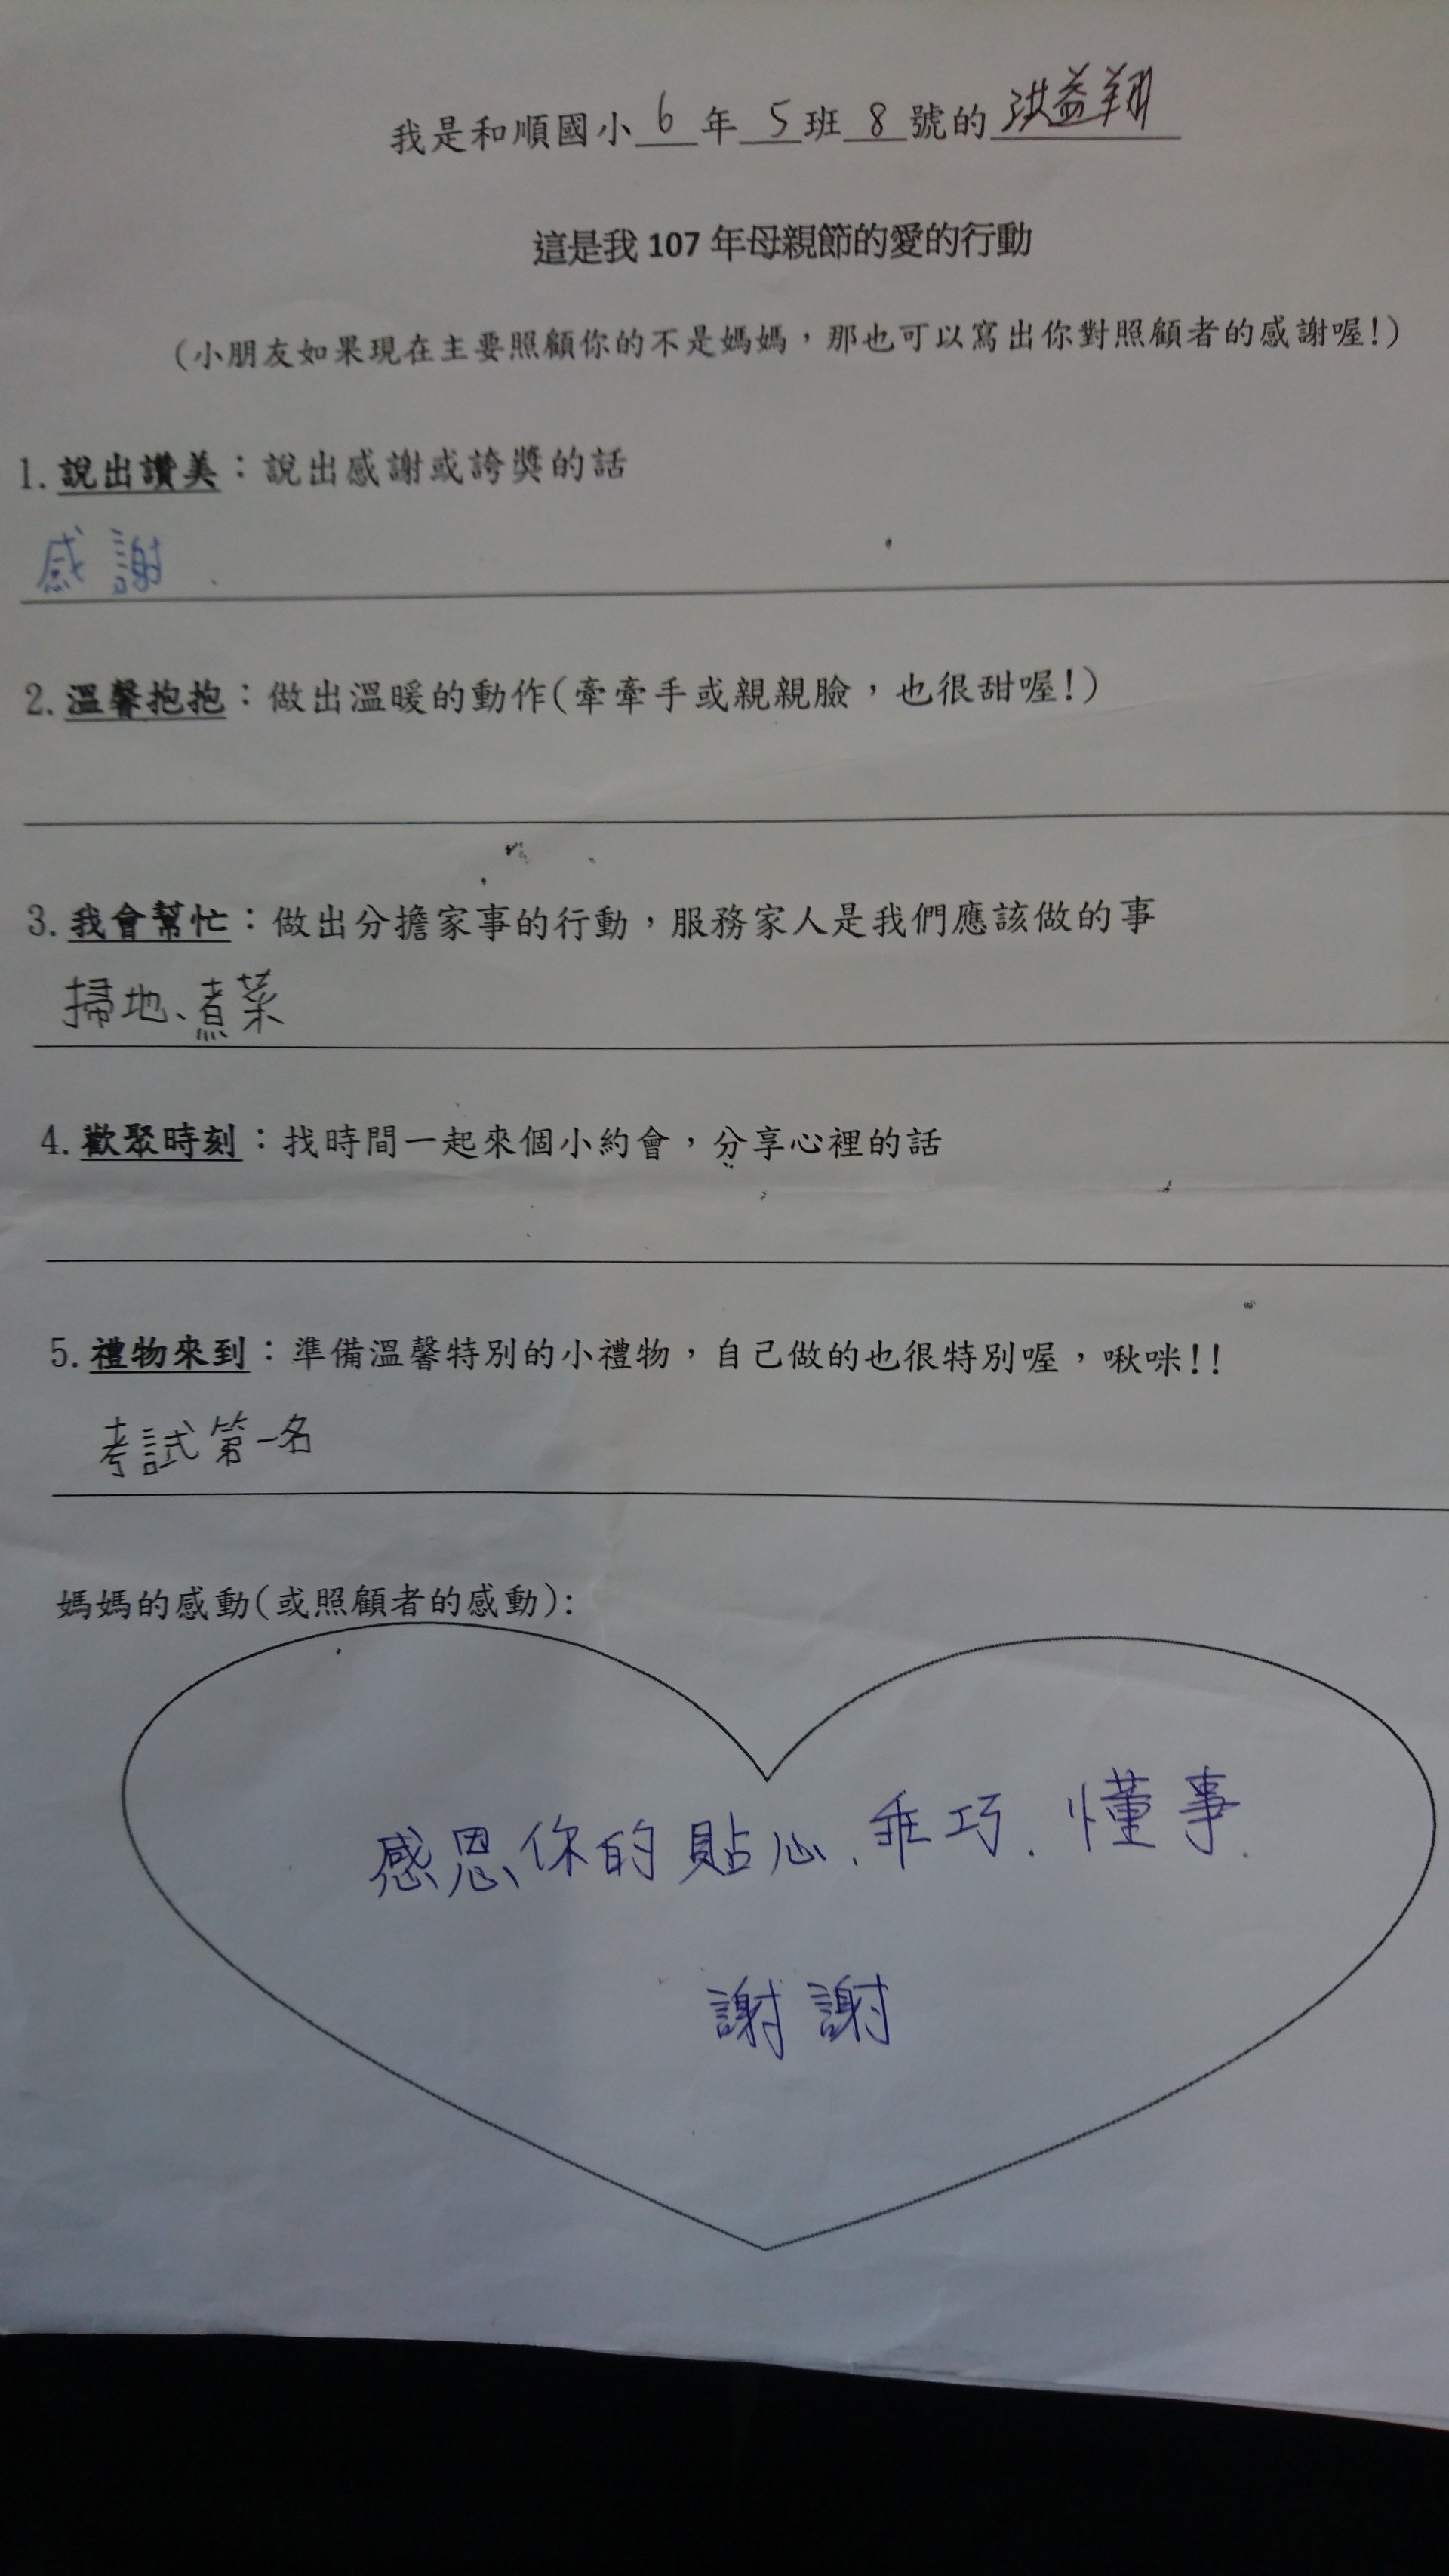 我是和順國小 6 年 5 班 8 號的 洪益翔
這是我 107 年母親節的愛的行動
(小朋友如果現在主要照顧你的不是媽媽，那也可以寫出你對照顧者的感謝喔!)
1. 說出讚美：說出感謝或誇獎的話
感謝
2. 溫馨抱抱：做出溫暖的動作(牽牽手或親親臉，也很甜喔!)
3. 我會幫忙：做出分擔家事的行動，服務家人是我們應該做的事
掃地、煮菜
4. 歡聚時刻：找時間一起來個小約會，分享心裡的話
5. 禮物來到：準備溫馨特別的小禮物，自己做的也很特別喔，啾咪!!
考試第一名
媽媽的感動(或照顧者的感動):
感恩你的貼心.乖巧.懂事.
謝謝